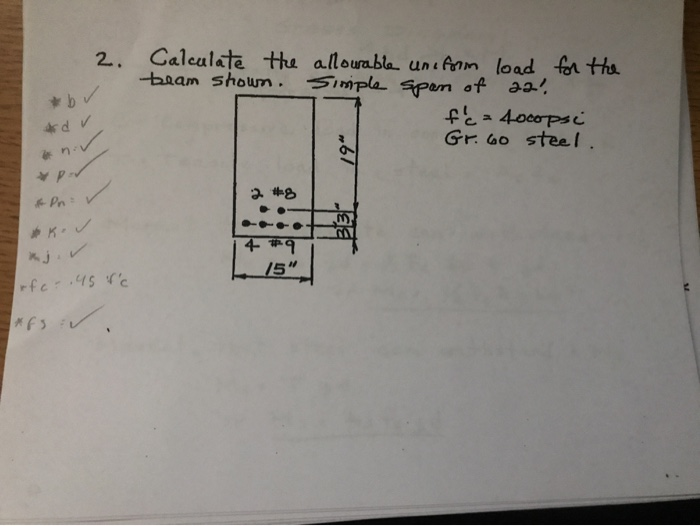 2. Calculate the allowable uniform load for the
beam shown. Simple span of 22'.
f'c = 4000psi
Gr. 60 steel.
* b ✓
* d ✓
* n = ✓
* p = ✓
* pn = ✓
* K = ✓
* j = ✓
* fc = .45 f'c
* fs = ✓
19"
2 #8
3"
3"
4 #9
15"